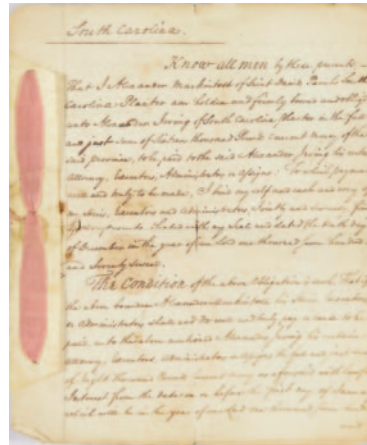 South Carolina.
Know all men by these presents
That I Alexander Mackintosh of Saint David Parish South
Carolina Planter am holden and firmly bound and obliged
unto Alexander Irving of South Carolina Planter in the full
and just sum of Sixteen thousand Pounds current money of the
said province, to be paid to the said Alexander Irving his certain
Attorney, Executors, Administrators or assigns: To which payment
well and truly to be made, I bind my self and each and every of
my Heirs, Executors and Administrators, Jointly and severally firmly
by these presents Sealed with my Seal and dated the tenth day
of December in the year of our Lord one thousand seven hundred
and Seventy seven.
The Condition of the above Obligation is such, That if
the above bounden Alexander Mackintosh his Heirs Executors
or Administrators shall and do well and truly pay or cause to be
paid, unto the above mentioned Alexander Irving his certain
attorney, Executors, Administrators or assigns the full and just sum
of Eight thousand Pounds current money as aforesaid with lawful
Interest from the date on or before the first day of January
which will be in the year of our Lord one thousand seven hundred